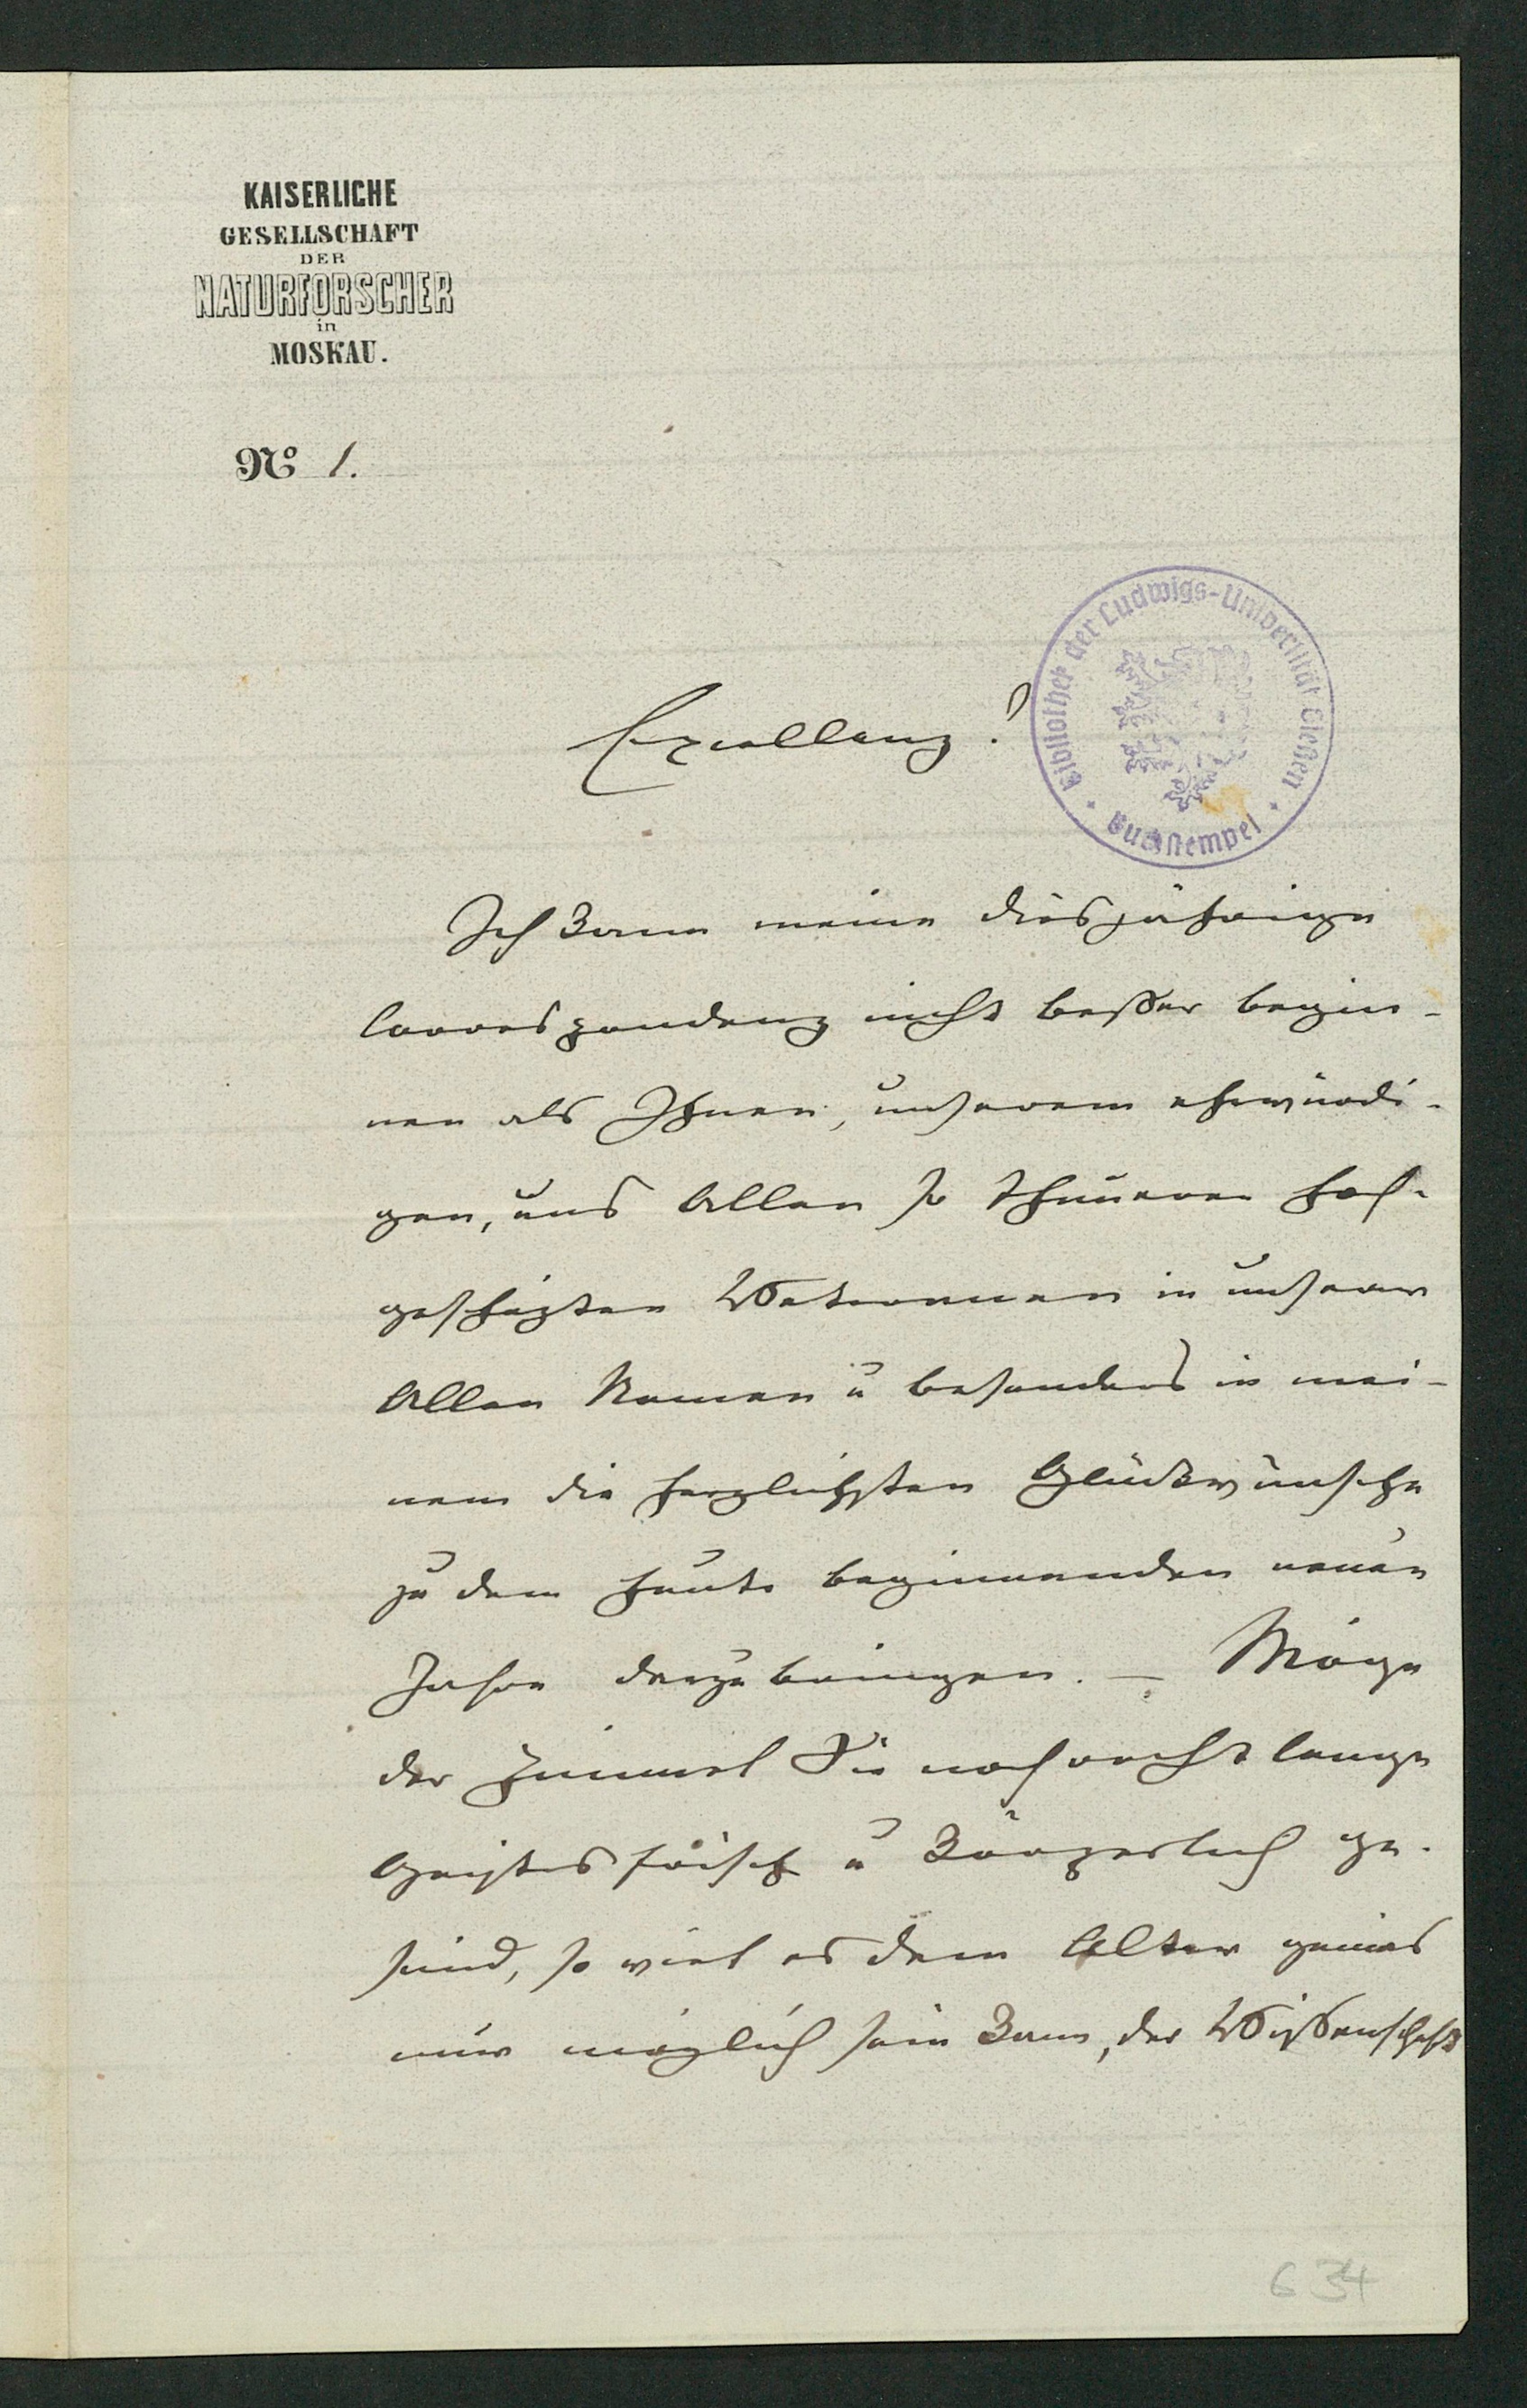 KAISERLICHE
GESELLSCHAFT
DER
NATURFORSCHER
in
MOSKAU.
No 1.
Bibliothek der Ludwigs-Universität Gießen
Buchstempel
Excellenz!
Ich kann meine diesjährige
Correspondenz nicht beßer begin-
nen als Ihnen, unserem ehrwürdi-
gen, uns Allen so theueren hoch-
geschäzten Veteranen in unserer
Aller Namen u besonders in mei-
nem die herzlichsten Glückwünsche
zu dem heute beginnenden neuen
Jahre darzubringen. – Möge
der Himmel Sie noch recht lange
Geistesfrisch u körperlich ge-
sund, so viel es dem Alter gemäs
nur möglich sein kann, der Wißenschaft
634